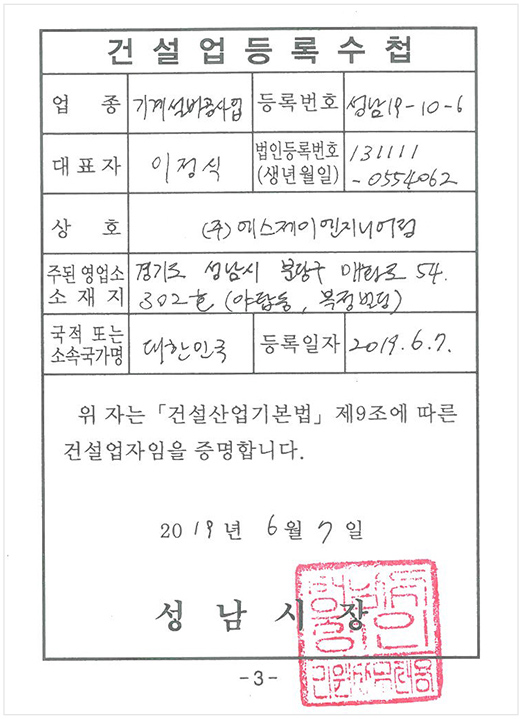 건설업등록수첩
업 종 기계설비공사업 등록번호 성남19-10-6
대표자 이정식 법인등록번호 (생년월일) 131111
-0554062
상 호 (주)에스제이엔지니어링
주된 영업소 소재지 경기도 성남시 분당구 매화로 54.
302호 (야탑동, 목정빌딩)
국적 또는 소속국가명 대한민국 등록일자 2019.6.7.
위 자는 「건설산업기본법」 제9조에 따른
건설업자임을 증명합니다.
2019년 6월 7일
성남시장
-3-